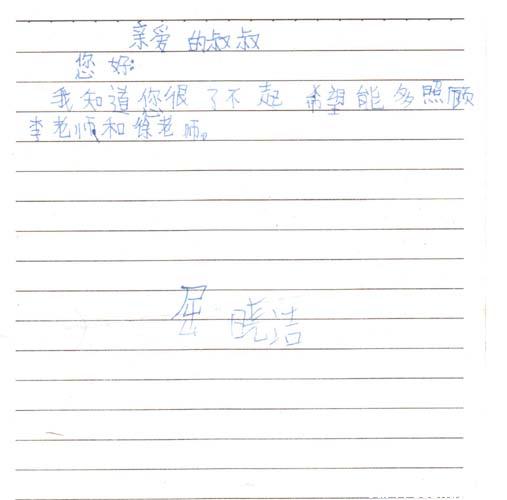 亲爱的叔叔
您好:
我知道您很了不起 希望能多照顾
李老师和徐老师。
屈晓洁